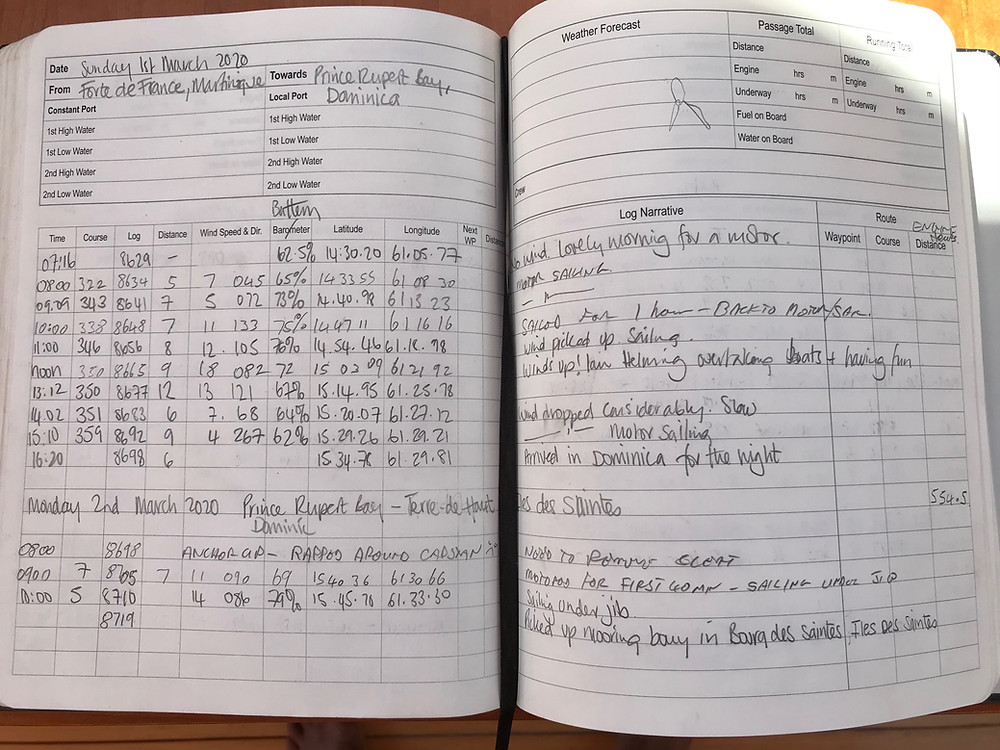 Date Sunday 1st March 2020
From Forte de France, Martinique Towards Prince Rupert Bay,
Constant Port Local Port Dominica
1st High Water 1st High Water
1st Low Water 1st Low Water
2nd High Water 2nd High Water
2nd Low Water 2nd Low Water
Battery
Time Course Log Distance Wind Speed & Dir. Barometer Latitude Longitude Next WP Distance
07:16 8629 - 62.5% 14:30.20 61.05.77
0800 322 8634 5 7 045 65% 14 33 55 61 08 30
09.09 343 8641 7 5 072 73% 14.40.98 61 13 23
10:00 338 8648 7 11 133 75% 14 47 11 61 16 16
11:00 346 8656 8 12. 105 76% 14.54.46 61.18.98
noon 350 8665 9 18 082 72 15 02 09 61 21 92
13:12 350 8677 12 13 121 67% 15.14.95 61.25.78
14.02 351 8683 6 7. 68 64% 15.20.07 61.27.12
15:10 359 8692 9 4 267 62% 15.29.26 61.29.21
16:20 8698 6 15.34.78 61.29.81
Monday 2nd March 2020 Prince Rupert Bay - Terre-de-Haut
Dominic
0800 8698 ANCHOR UP - RAPPED AROUND
0900 7 8705 7 11 090 69 15 40 36 61 30 66
10:00 5 8710 14 086 79% 15.45.70 61.33.30
8719
Weather Forecast Passage Total Running Total
Distance Distance
Engine hrs m Engine hrs m
Underway hrs m Underway hrs m
Fuel on Board
Water on Board
Crew
Log Narrative Route
Waypoint Course Distance ENGINE Hours
No wind lovely mornig for a motor.
MOTOR SAILING
- " -
SAILED FOR 1 hour - BACK TO MOTOR/SAIL.
Wind picked up Sailing.
Winds Up! Ian Helming overtaking boats + having fun
Wind dropped considerably. Slow
Motor Sailing
Arrived in Dominica for the night
Iles des Saintes 554.5
NEED TO REMOVE
MOTORED FOR FIRST - SAILING UNDER JIB
Sailing under jib.
Picked up mooring bouy in Bourg des Saintes, Iles Des Saintes